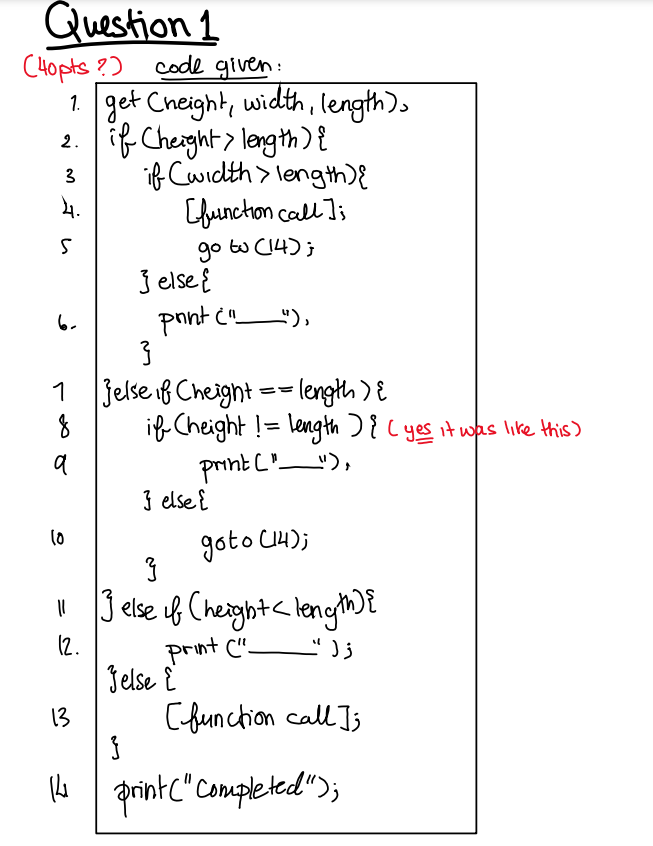 Question 1
(40pts ?) code given:
1. get (height, width, length);
2. if (height > length) {
3 if (width > length){
4. [function call];
5 go to (14);
} else {
6. print ("____");
}
7 }else if (height == length) {
8 if (height != length) { (yes it was like this)
9 print ("____");
} else {
10 goto (14);
}
11 } else if (height < length){
12. print ("____");
}else {
13 [function call];
}
14 print("completed");